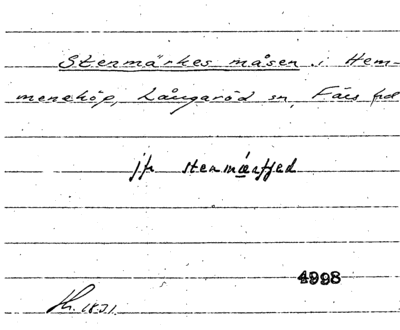 Stenmärkes måsen i Hem-
meneköp, Långaröd sn, Färs hd
jfr stenmærfjed
4998